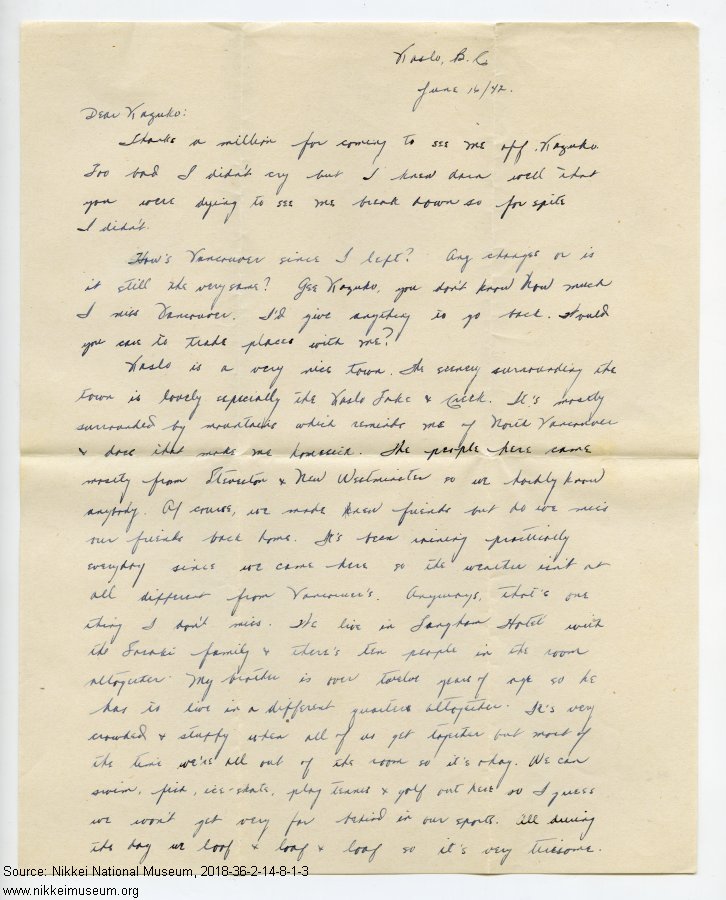 Kaslo, B.C.
June 16/42.
Dear Kazuko:
Thanks a million for coming to see me off, Kazuko.
Too bad I didn't cry but I knew darn well that
you were dying to see me break down so for spite
I didn't.
How's Vancouver since I left? Any changes or is
it still the very same? Gee Kazuko, you don't know how much
I miss Vancouver. I'd give anything to go back. Would
you care to trade places with me?
Kaslo is a very nice town. The scenery surrounding the
town is lovely especially the Kaslo Lake & Creek. It's mostly
surrounded by mountains which reminds me of North Vancouver
& does that make me homesick. The people here came
mostly from Steveston & New Westminster so we hardly know
anybody. Of course, we made knew friends but do we miss
our friends back home. It's been raining practically
everyday since we came here so the weather isn't at
all different from Vancouver's. Anyways, that's one
thing I don't miss. We live in Langham Hotel with
the Sasaki family & there's ten people in the room
altogether. My brother is over twelve years of age so he
has to live in a different quarters altogether. It's very
crowded & stuffy when all of us get together but most of
the time we're all out of the room so it's okay. We can
swim, fish, ice-skate, play tennis & golf out here so I guess
we won't get very far behind in our sports. All during
the day we loaf & loaf & loaf so it's very tiresome.
Source: Nikkei National Museum, 2018-36-2-14-8-1-3
www.nikkeimuseum.org